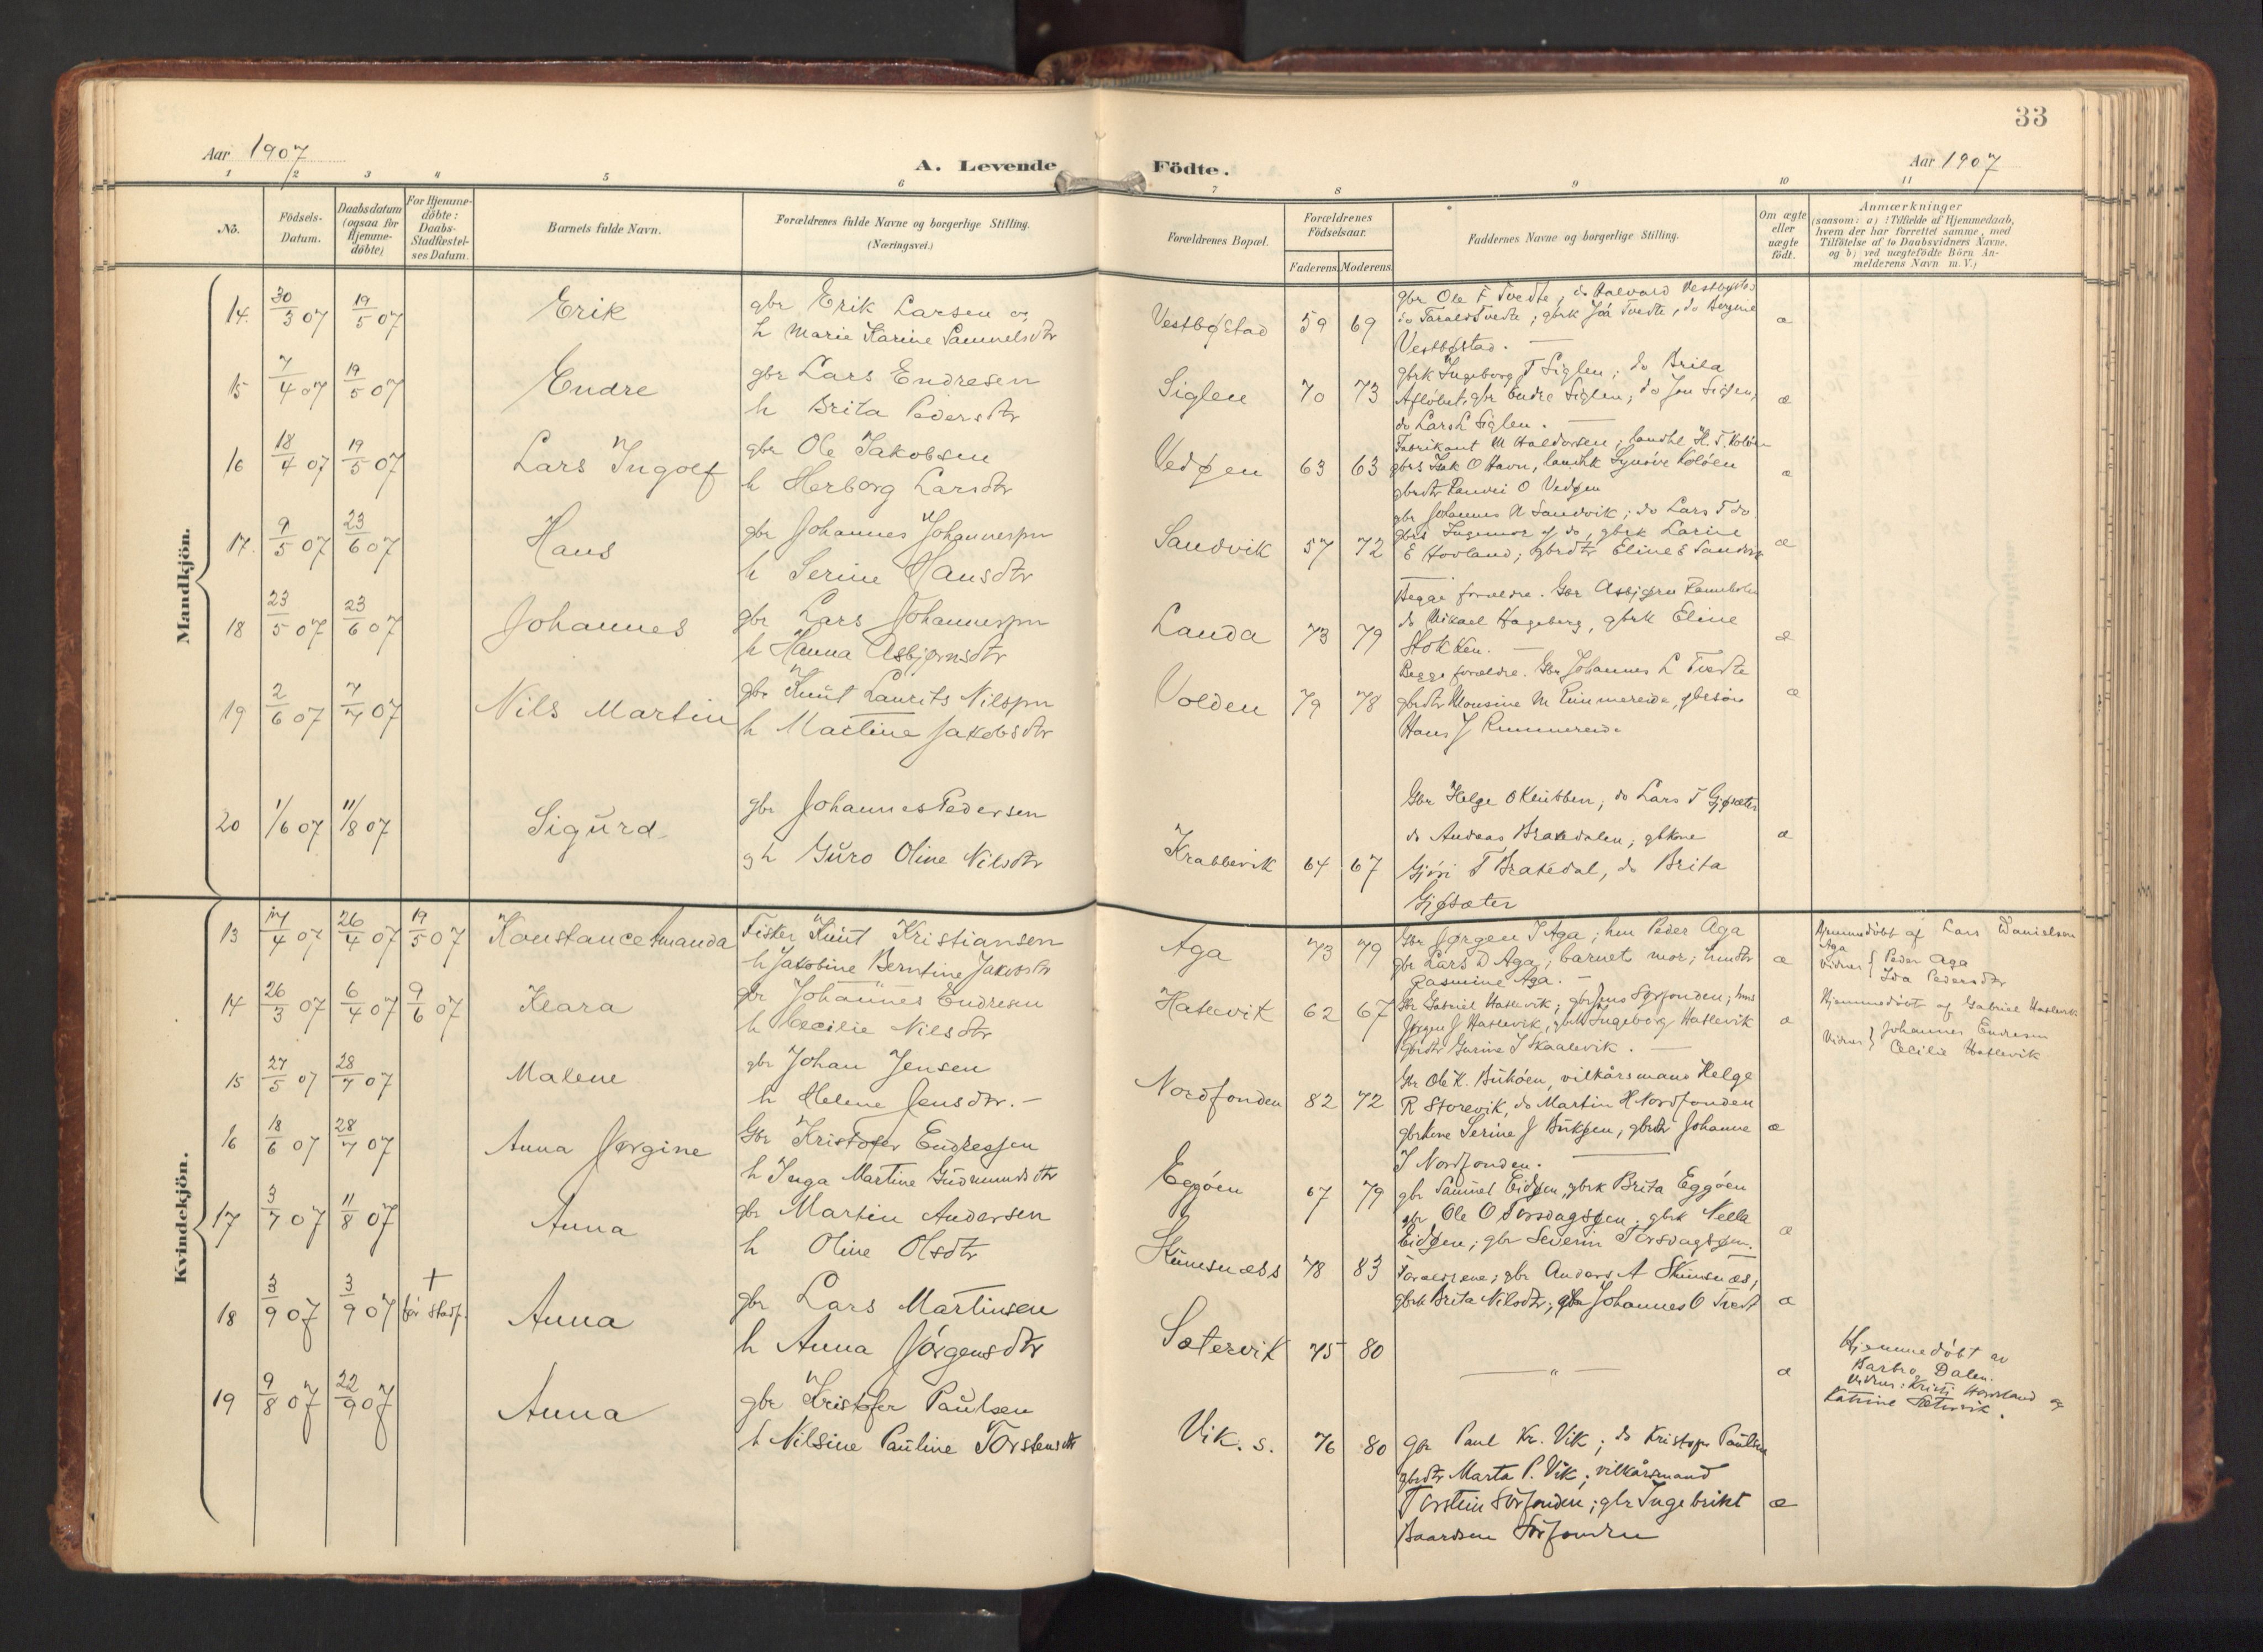 33
Aar 1907
A. Levende Födte.
Aar 1907
1 2 3 4 5 6 7 8 9 10 11
No.
Födsels-
Datum.
Daabsdatum
(ogsaa for
Hjemme-
döbte)
For Hjemme-
döbte:
Daabs-
Stadfæstel-
ses Datum.
Barnets fulde Navn.
Forældrenes fulde Navne og borgerlige Stilling.
(Næringsvei.)
Forældrenes Bopæl.
Forældrenes
Födselsaar.
Faderens Moderens
Faddernes Navne og borgerlige Stilling.
Om ægte
eller
uægte
födt.
Anmærkninger
(saasom: a) i Tilfælde af Hjemmedaab,
hvem der har forrettet samme, med
Tilföielse af to Daabsvidners Navne,
og b) ved uægtefödte Börn An-
melderens Navn m. V.)
Mandkjön.
14. 30/3 07 19/5 07 Erik
gbr Erik Larsen og
h Marie Karine Samuelsdtr
Vestbøstad 59 69
gbr Ole F Tvedte, do Halvard Vestbøstad
do Tarald Tvedte; gbrk Joa Tvedte, do Bergine
Vestbøstad. æ
15 7/4 07 19/5 07 Endre
gbr Lars Endresen
h Brita Pedersdtr
Siglen 70 73
gbrk Ingeborg T Siglen; do Brita
Afløbet; gbr Endre Siglen; do Jon Siglen,
do Lars L Siglen. æ
16 18/4 07 19/5 07 Lars Ingolf
gbr Ole Jakobsen
h Herborg Larsdtr
Vedøen 63 63
Fabrikant M Haldorsen; landhl H. T. Koløen
gbrs Isak O Havn, landhk Synøve Koløen
gbrdtr Ranvei O Vedøen æ
17. 9/5 07 23/6 07 Hans
gbr Johannes Johannespn
h Serine Hansdtr
Sandvik 57 72
gbr Johannes N Sandvik; do Lars T do
gbrs Ingemor J do, gbrk Larine
E Hovland; gbrdtr Eline E Sandvik æ
18 23/5 07 23/6 07 Johannes
gbr Lars Johannespn
h Hanna Asbjørnsdtr
Landa 73 79
Begge forældre. Gbr Asbjørn
do Mikael Hageberg, gbrk Eline
Stokken. æ
19 2/6 07 7/7 07 Nils Martin
gbr Knut Laurits Nilspn
h Martine Jakobsdtr
Volden 79 78
Begge forældre. Gbr Johannes L Tvedte
gbrdtr Monsine M Rimmereide, gbrsøn
Hans J Rimmereide æ
20 1/6 07 11/8 07 Sigurd
gbr Johannes Pedersen
gh Guro Oline Nilsdtr
Krabbevik 64 67
Gbr Helge O Klubben; do Lars T Gjøsæter
do Andeas Brakedalen; gbkone
Gjøri T Brakedal, do Brita
Gjøsæter æ
Kvindekjön.
13 17/4 07 26/4 07 19/5 07 Konstance Amanda
Fisker Knut Kristiansen
h Jakobine Berntine Jakobsdtr
Aga 73 79
Gbr Jørgen J Aga; hm Peder Aga
gbr Lars D Aga; barnets mor; hmdtr
Rasmine Aga. æ
Hjemmedöbt af Lars Danielsen
Aga
Vidner { Peder Aga
Ida Pedersdtr
14 26/3 07 6/4 07 9/6 07 Klara
gbr Johannes Endresen
h Cecilie Nilsdtr
Hatlevik 62 67
Gbr Gabriel Hatlevik; gbr Jens Sørfonden; hms
Jørgen J Hatlevik, gbrk Ingeborg Hatlevik
gbrdtr Gurine I Skaalevik. æ
Hjemmedöbt af Gabriel Hatlevik
Vidner } Johannes Endresen
Cecilie Hatlevik
15 27/5 07 28/7 07 Malene
gbr Johan Jensen
h Helene Jensdtr.
Nordfonden 82 72
Gbr Ole K. Bukøen, vilkårsmand Helge
R Storevik, do Martin H Nordfonden
gbrkone Serine J Bukøen, gbrdtr Johanne
I Nordfonden. æ
16 18/6 07 28/7 07 Anna Jørgine
Gbr Kristofer Endresjen
h Inga Martine Gudmundsdtr
Eggøen 67 79
gbr Samuel Eidøen, gbrk Brita Eggøen
gbr Ole O Torsdagsøen; gbrk Nella
Eidøen; gbr Severin Torsdagsøen. æ
17 3/7 07 11/8 07 Anna
gbr Martin Andersen
h Oline Olsdtr
Skumsnæss 78 83
Forældrene; gbr Anders A Skumsnæs;
gbrk Brita Nilsdtr; gbr Johannes O Tvedt æ
18 3/9 07 3/9 07 + før stadf. Anna
gbr Lars Martinsen
h Anna Jørgensdtr
Sætervik 75 80
— " — æ
Hjemmedöbt av
Barbro Dalen.
Vidner: Kristi Hovland og
Katrine Sætervik.
19 9/8 07 22/9 07 Anna
gbr Kristofer Paulsen
h Nilsine Pauline Torstensdtr
Vik. s. 76 80
Gbr Paul Kr. Vik; do Kristofer Paulsen
gbrdtr Marta P. Vik; vilkårsmand
Torstein Sörfonden; gbr Ingebrikt
Baardsen Sörfonden æ